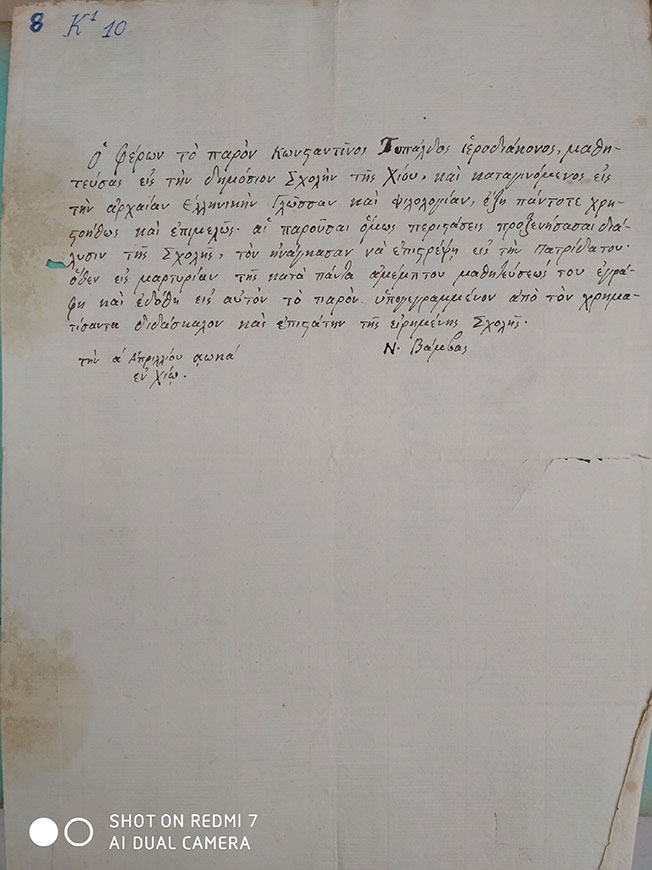 8 Κ¹ 10
Ὁ φέρων τὸ παρὸν Κωνςαντῖνος Τυπάλδος ἱεροδιάκονος, μαθη-
τεύσας εἰς τὴν δημόσιον Σχολὴν τῆς Χίου, καὶ καταγινόμενος εἰς
τὴν ἀρχαίαν Ἑλληνικὴν Γλῶσσαν καὶ Φιλολογίαν, ἔζη πάντοτε χρη-
ςοήθως καὶ ἐπιμελῶς. αἱ παροῦσαι ὅμως περιςάσεις προξενήσασαι διά-
λυσιν τῆς Σχολῆς, τὸν ἠνάγκασαν νὰ ἐπιςρέψῃ εἰς τὴν Πατρίδα του.
ὅθεν εἰς μαρτυρίαν τῆς κατὰ πάντα ἀμέμπτου μαθητεύσεώς του ἐγρά-
φη καὶ ἐδόθη εἰς αὐτὸν τὸ παρὸν ὑπογεγραμμένον ἀπὸ τὸν χρημα-
τίσαντα διδάσκαλον καὶ ἐπιςάτην τῆς εἰρημένης Σχολῆς.
τὴν ά Ἀπριλλίου αωκά
Ν. Βάμβας
ἐν Χίῳ.
SHOT ON REDMI 7
AI DUAL CAMERA